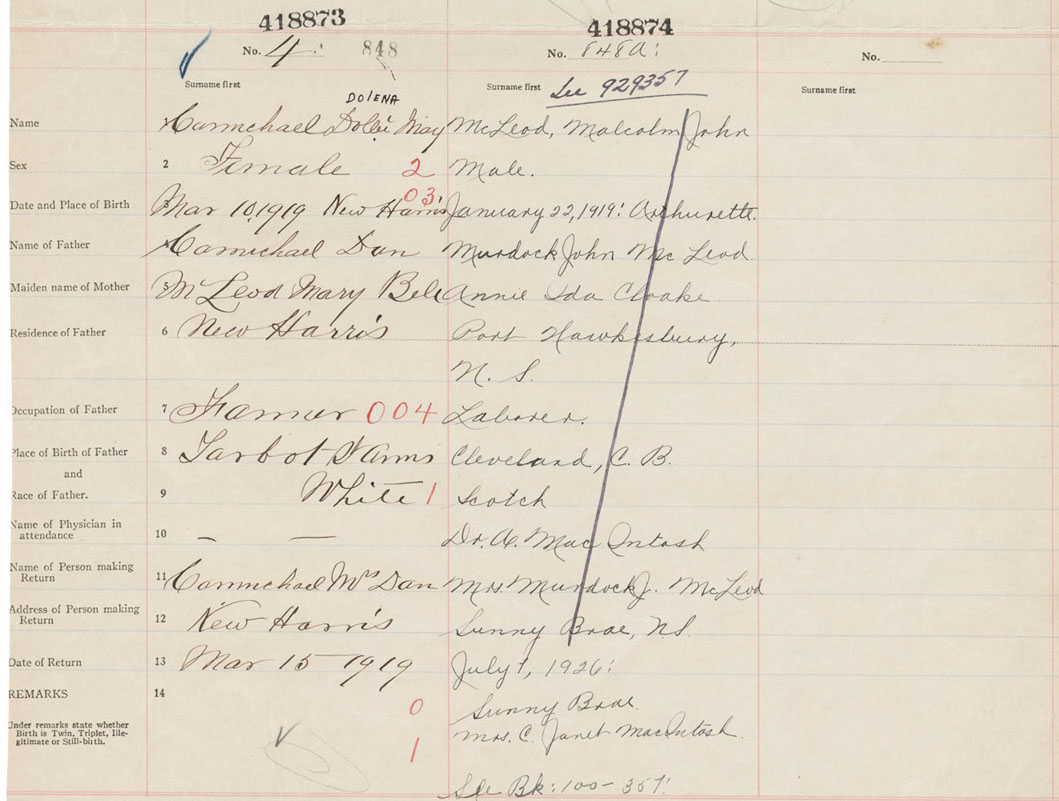 418873
418874
No. 4. 848
No. 848A:
No.
Surname first
Surname first See 929357
Surname first
DOLENA
Name Carmichael Dollie May McLeod, Malcolm John
Sex 2 Female 2 Male.
03
Date and Place of Birth 3 Mar 10, 1919 New Harris January 22, 1919: Arthurette.
Name of Father Carmichael Dan Murdock John Mc Leod.
Maiden name of Mother 5 McLeod Mary Bell Annie Ida Cloake
Residence of Father 6 New Harris Port Hawkesbury,
N. S.
Occupation of Father 7 Farmer 004 Laborer.
Place of Birth of Father 8 Tarbot Farms Cleveland, C. B.
and
Race of Father. 9 White 1 Scotch
Name of Physician in
attendance 10 – — Dr. A. MacIntosh
Name of Person making
Return 11 Carmichael Mrs Dan Mrs. Murdock J. McLeod
Address of Person making
Return 12 New Harris Sunny Brae, N.S.
Date of Return 13 Mar 15 1919 July 1, 1926:
REMARKS 14
0 Sunny Brae.
Under remarks state whether
Birth is Twin, Triplet, Ille-
gitimate or Still-birth.
1 Mrs. C. Janet MacIntosh.
See Bk: 100-357: